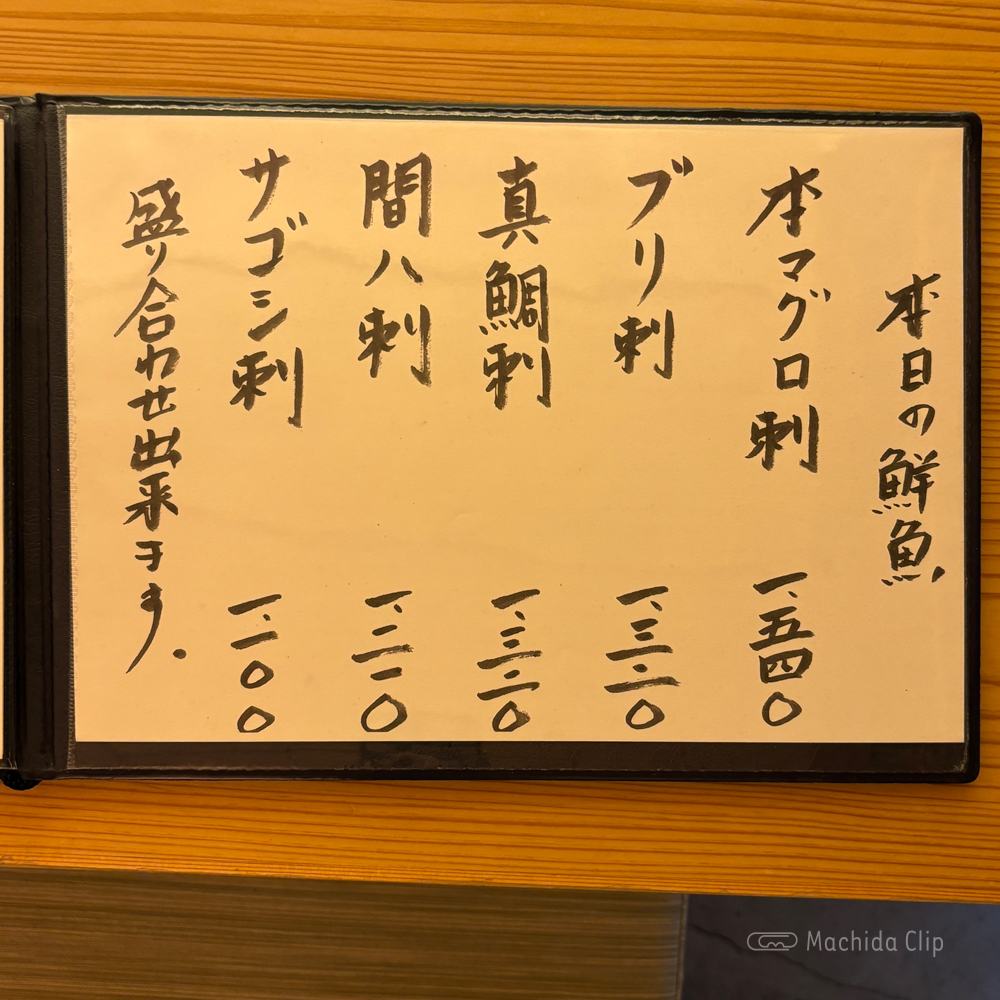 本日の鮮魚
本マグロ刺 一、五四〇
ブリ刺 一、三二〇
真鯛刺 一、三二〇
間八刺 一、二一〇
サゴシ刺 一、一〇〇
盛り合わせ出来ます。
Machida Clip